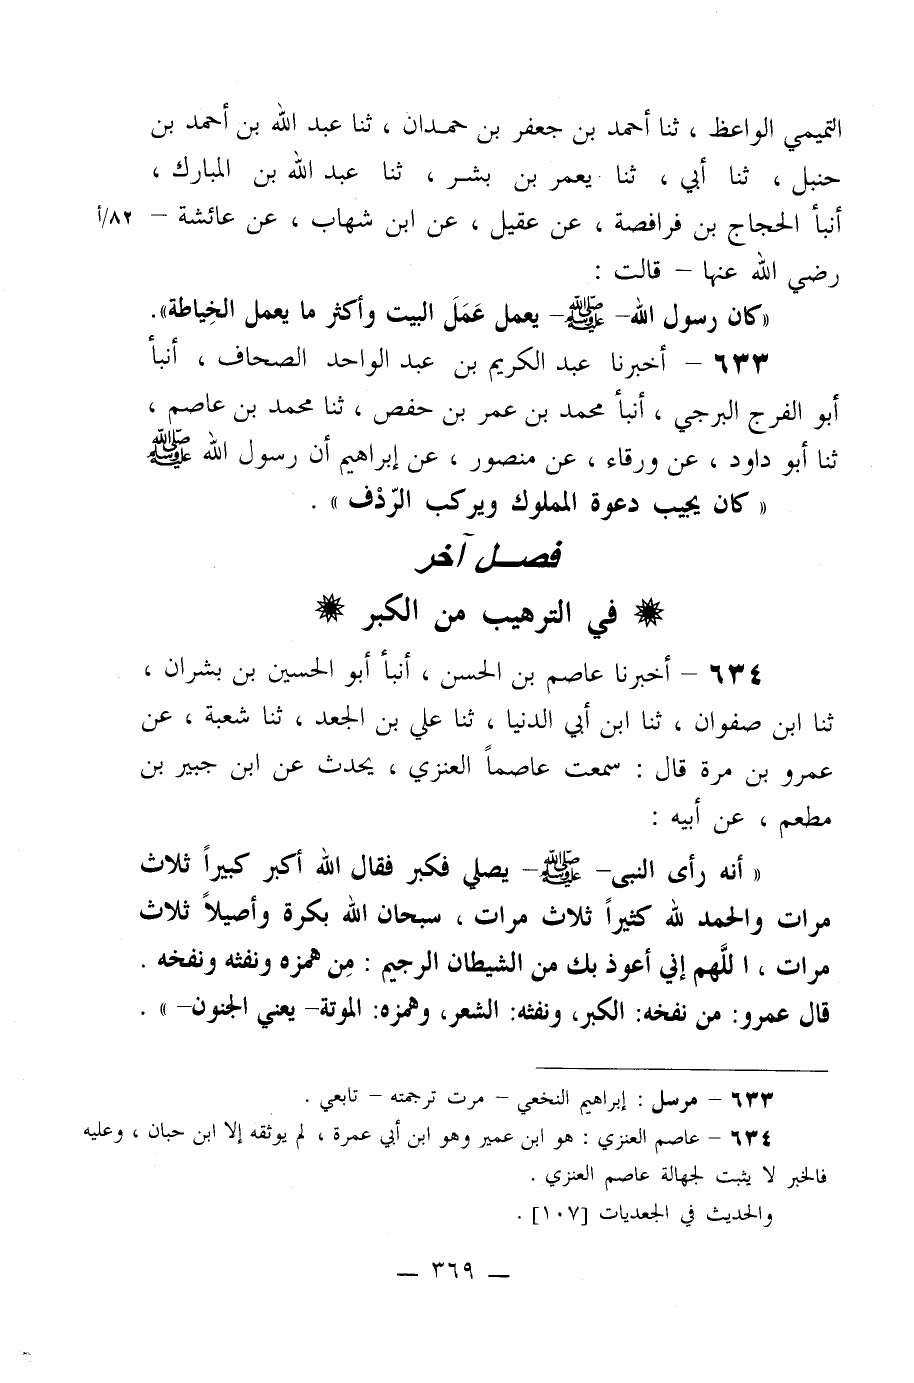 التميمي الواعظ ، ثنا أحمد بن جعفر بن حمدان ، ثنا عبد الله بن أحمد بن
حنبل ، ثنا أبي ، ثنا يعمر بن بشر ، ثنا عبد الله بن المبارك ،
أنبأ الحجاج بن فرافصة ، عن عقيل ، عن ابن شهاب ، عن عائشة – ٨٢/أ
رضي الله عنها – قالت :
«كان رسول الله– ﷺ– يعمل عَمَلَ البيت وأكثر ما يعمل الخِياطة».
٦٣٣ – أخبرنا عبد الكريم بن عبد الواحد الصحاف ، أنبأ
أبو الفرج البرجي ، أنبأ محمد بن عمر بن حفص ، ثنا محمد بن عاصم ،
ثنا أبو داود ، عن ورقاء ، عن منصور ، عن إبراهيم أن رسول الله ﷺ
« كان يجيب دعوة المملوك ويركب الرّدْف » .
فصل آخر
في الترهيب من الكبر
٦٣٤ – أخبرنا عاصم بن الحسن ، أنبأ أبو الحسين بن بشران ،
ثنا ابن صفوان ، ثنا ابن أبي الدنيا ، ثنا علي بن الجعد ، ثنا شعبة ، عن
عمرو بن مرة قال : سمعت عاصماً العنزي ، يحدث عن ابن جبير بن
مطعم ، عن أبيه :
« أنه رأى النبى– ﷺ– يصلي فكبر فقال الله أكبر كبيراً ثلاث
مرات والحمد لله كثيراً ثلاث مرات ، سبحان الله بكرة وأصيلاً ثلاث
مرات ، ا للَّهم إني أعوذ بك من الشيطان الرجيم : مِن همزه ونفثه ونفخه .
قال عمرو: من نفخه: الكبر، ونفثه: الشعر، وهمزه: الموتة– يعني الجنون– » .
٦٣٣ – مرسل : إبراهيم النخعي – مرت ترجمته – تابعي .
٦٣٤ – عاصم العنزي : هو ابن عمير وهو ابن أبي عمرة ، لم يوثقه إلا ابن حبان ، وعليه
فالخبر لا يثبت لجهالة عاصم العنزي .
والحديث في الجعديات [١٠٧] .
– ٣٦٩ –